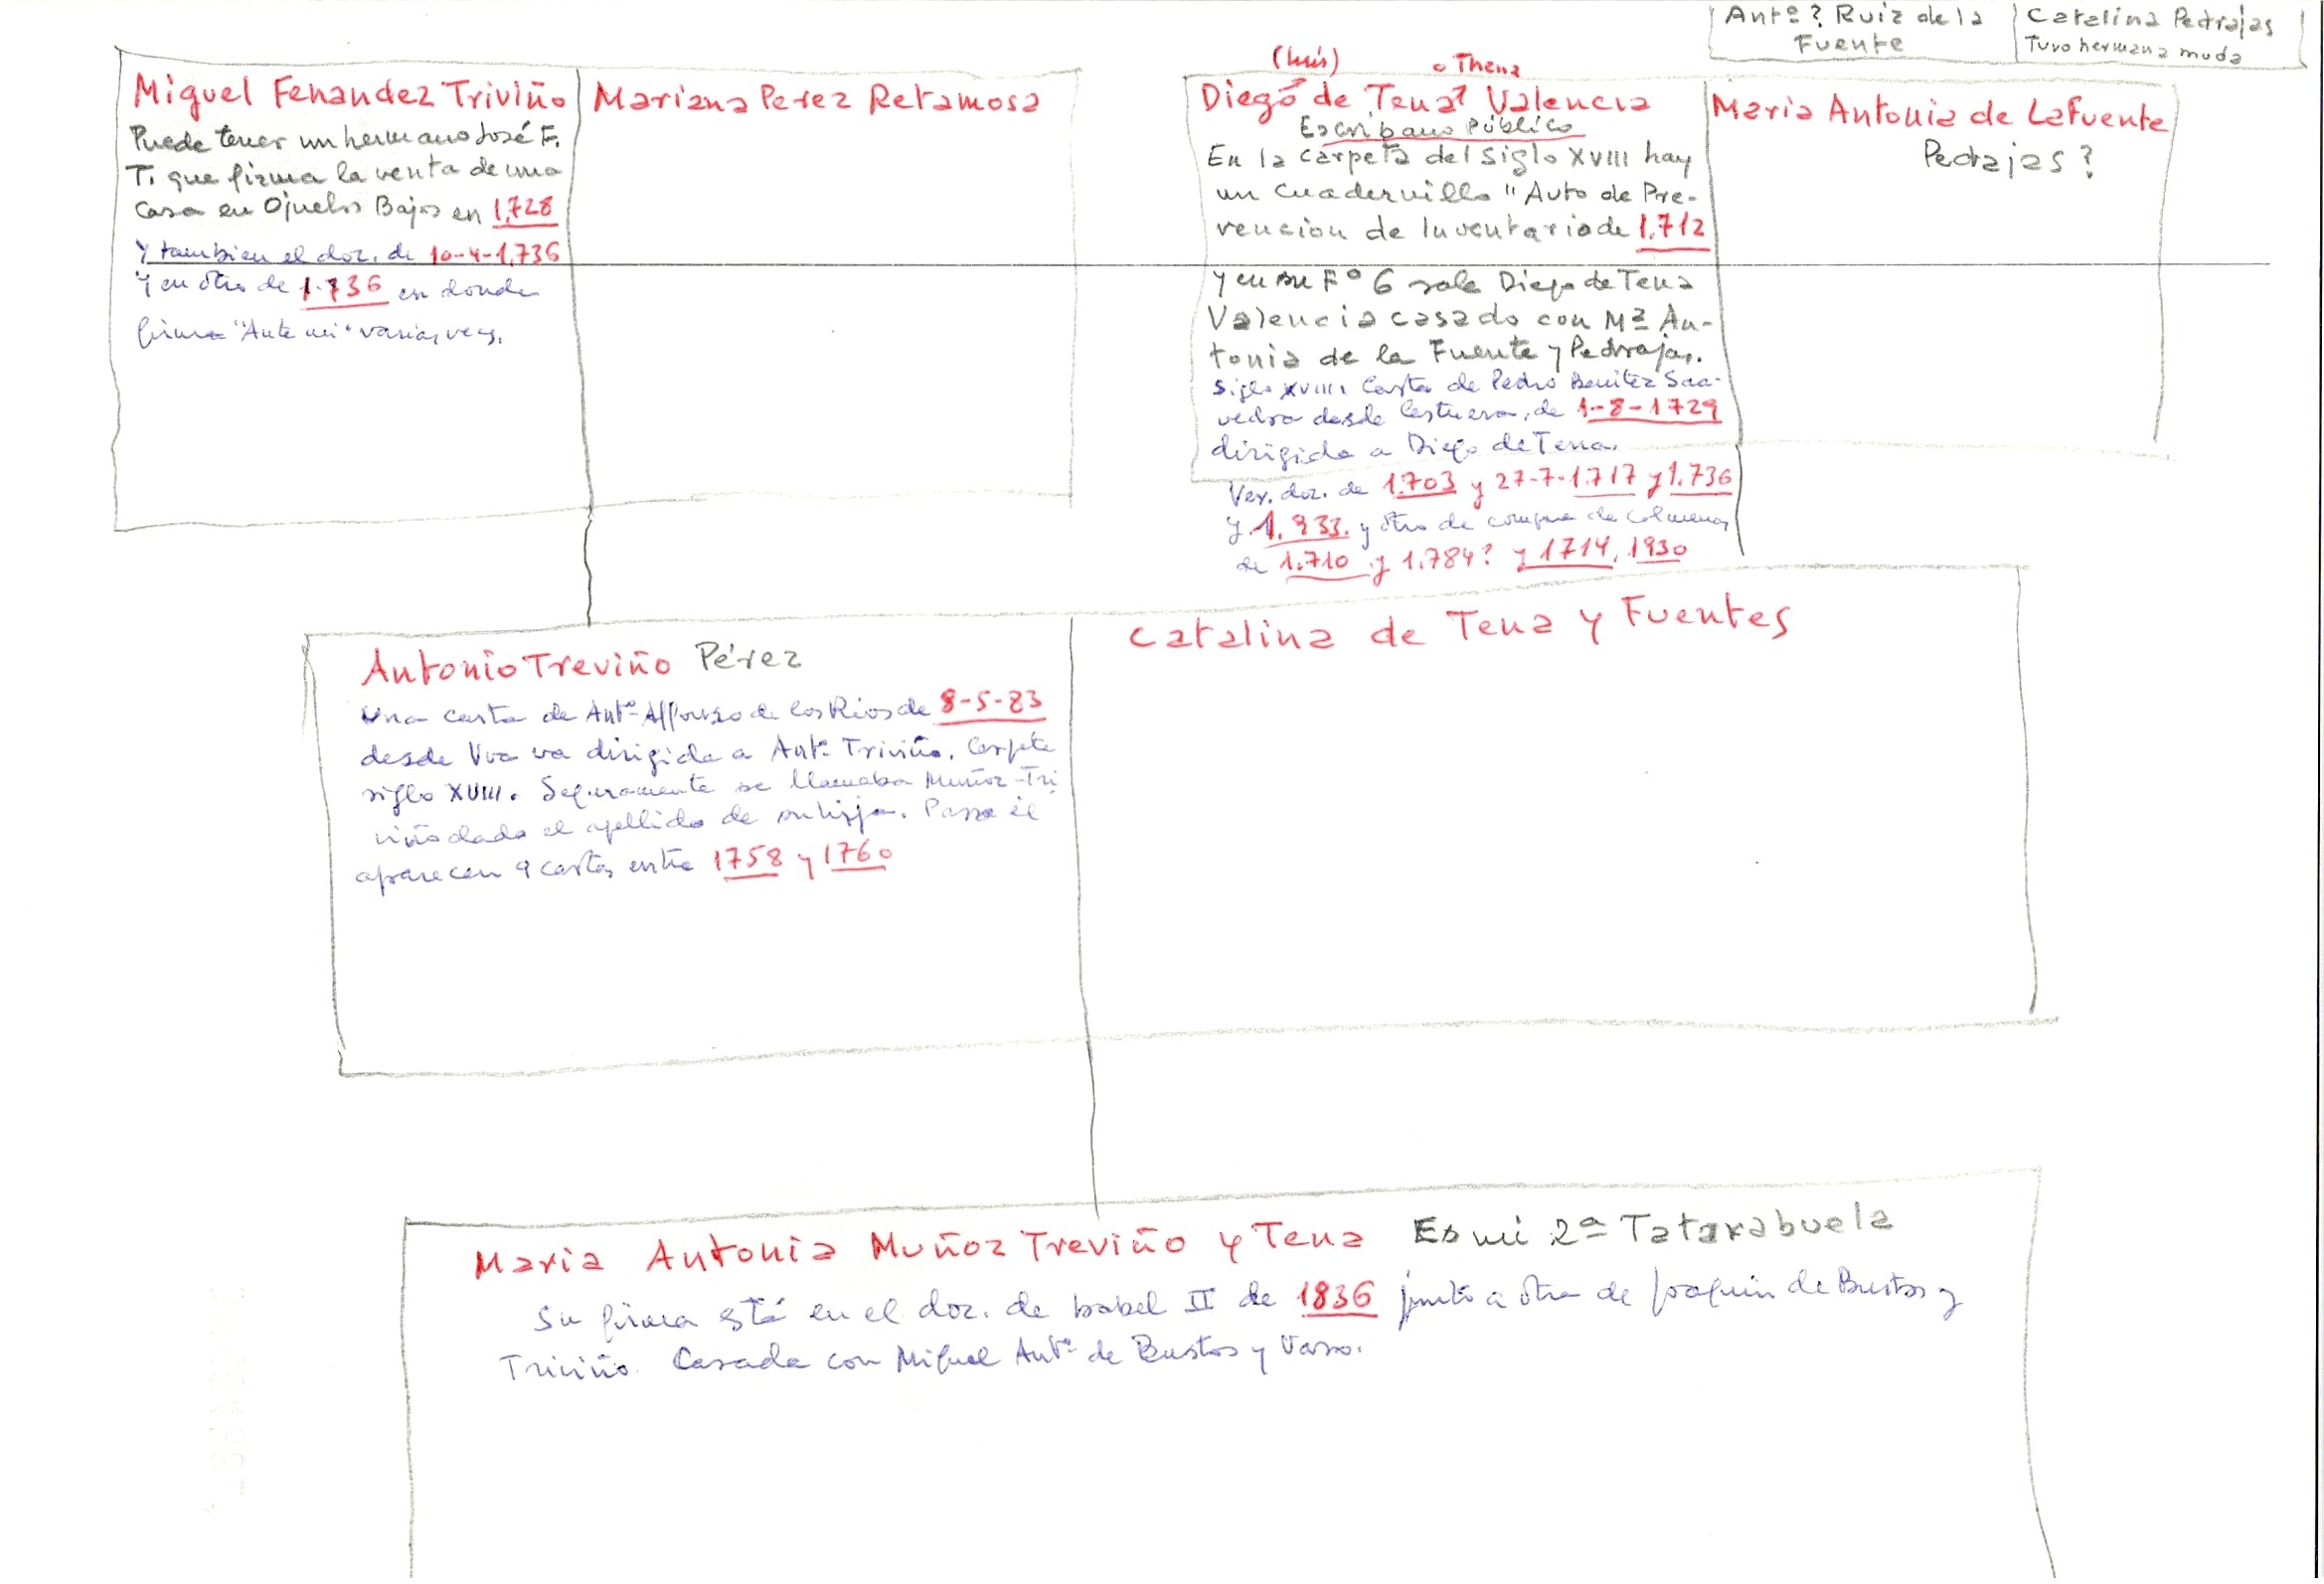 Antº? Ruiz de la
Fuente
Catalina Pedrajas
Tuvo hermana muda
Miguel Fenandez Triviño
Puede tener un hermano José F.
T. que firma la venta de una
casa en Ojuelos Bajos en 1,728
Y tambien el doz. de 10-4-1,736
Y en otro de 1.736 en donde
firma "Ante mi" varias veces.
Mariana Perez Retamosa
(Luis) o Thena
Diego de Tena Valencia
Escribano Público
En la carpeta del Siglo XVIII hay
un cuadernillo "Auto de Pre-
vencion de Inventario de 1.712
y en su Fº 6 sale Diego de Tena
Valencia casado con Mª An-
tonia de la Fuente y Pedrajas.
Siglo XVIII. Carta de Pedro Benitez Saa-
vedra desde Castuera, de 1-8-1729
dirigida a Diego de Tena.
Ver. doz. de 1.703 y 27-7-1.717 y 1.736
y 1.933. y otro de compra de colmenas
de 1.710 y 1.784? y 1714, 1930
Maria Antonia de Lafuente
Pedrajas?
Antonio Treviño Pérez
Una carta de Antº Alfonso de los Rios de 8-5-83
desde Vva va dirigida a Antº Triviño. Carpeta
siglo XVIII. Seguramente se llamaba Muñoz-Tri
viño dado el apellido de su hija. Para él
aparecen 9 cartas entre 1758 y 1760
Catalina de Tena y Fuentes
Maria Antonia Muñoz Treviño y Tena Es mi 2ª Tatarabuela
Su firma está en el doz. de Isabel II de 1836 junto a otra de Joaquin de Bustos y
Triviño. Casada con Miguel Antº de Bustos y Varo.